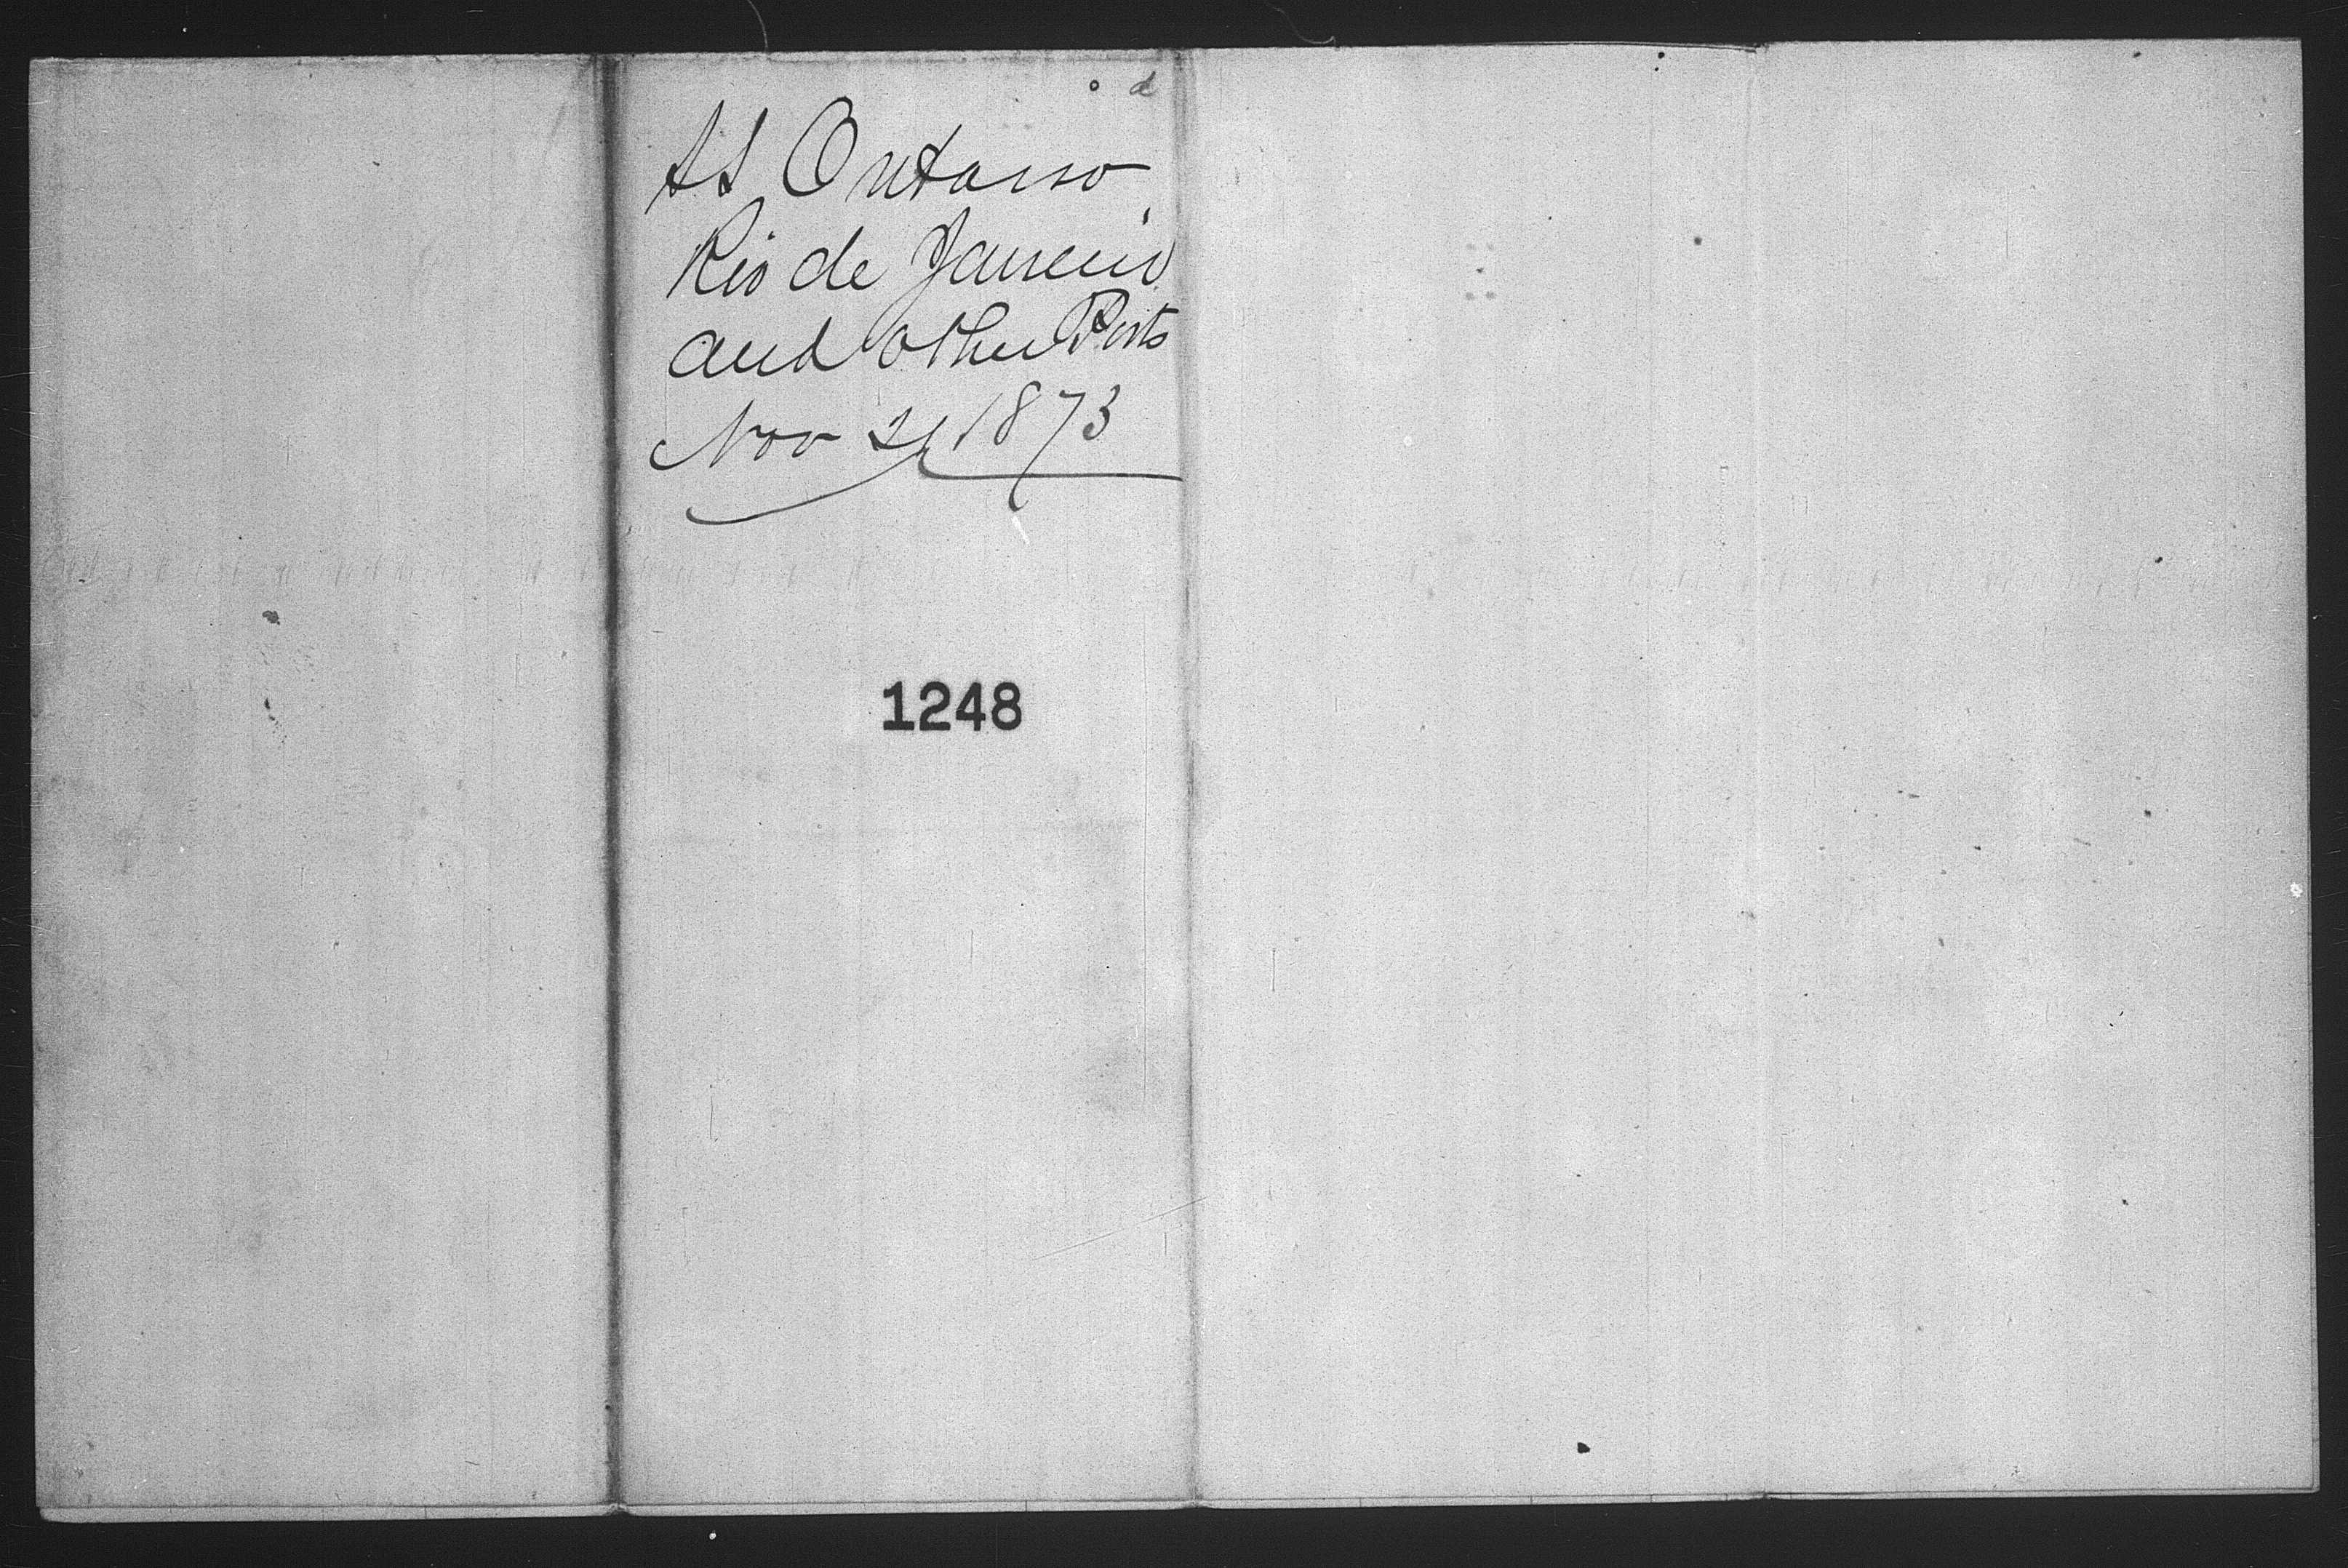 SS Ontario
Rio de Janeiro
and other Ports
Nov 21 1873
1248